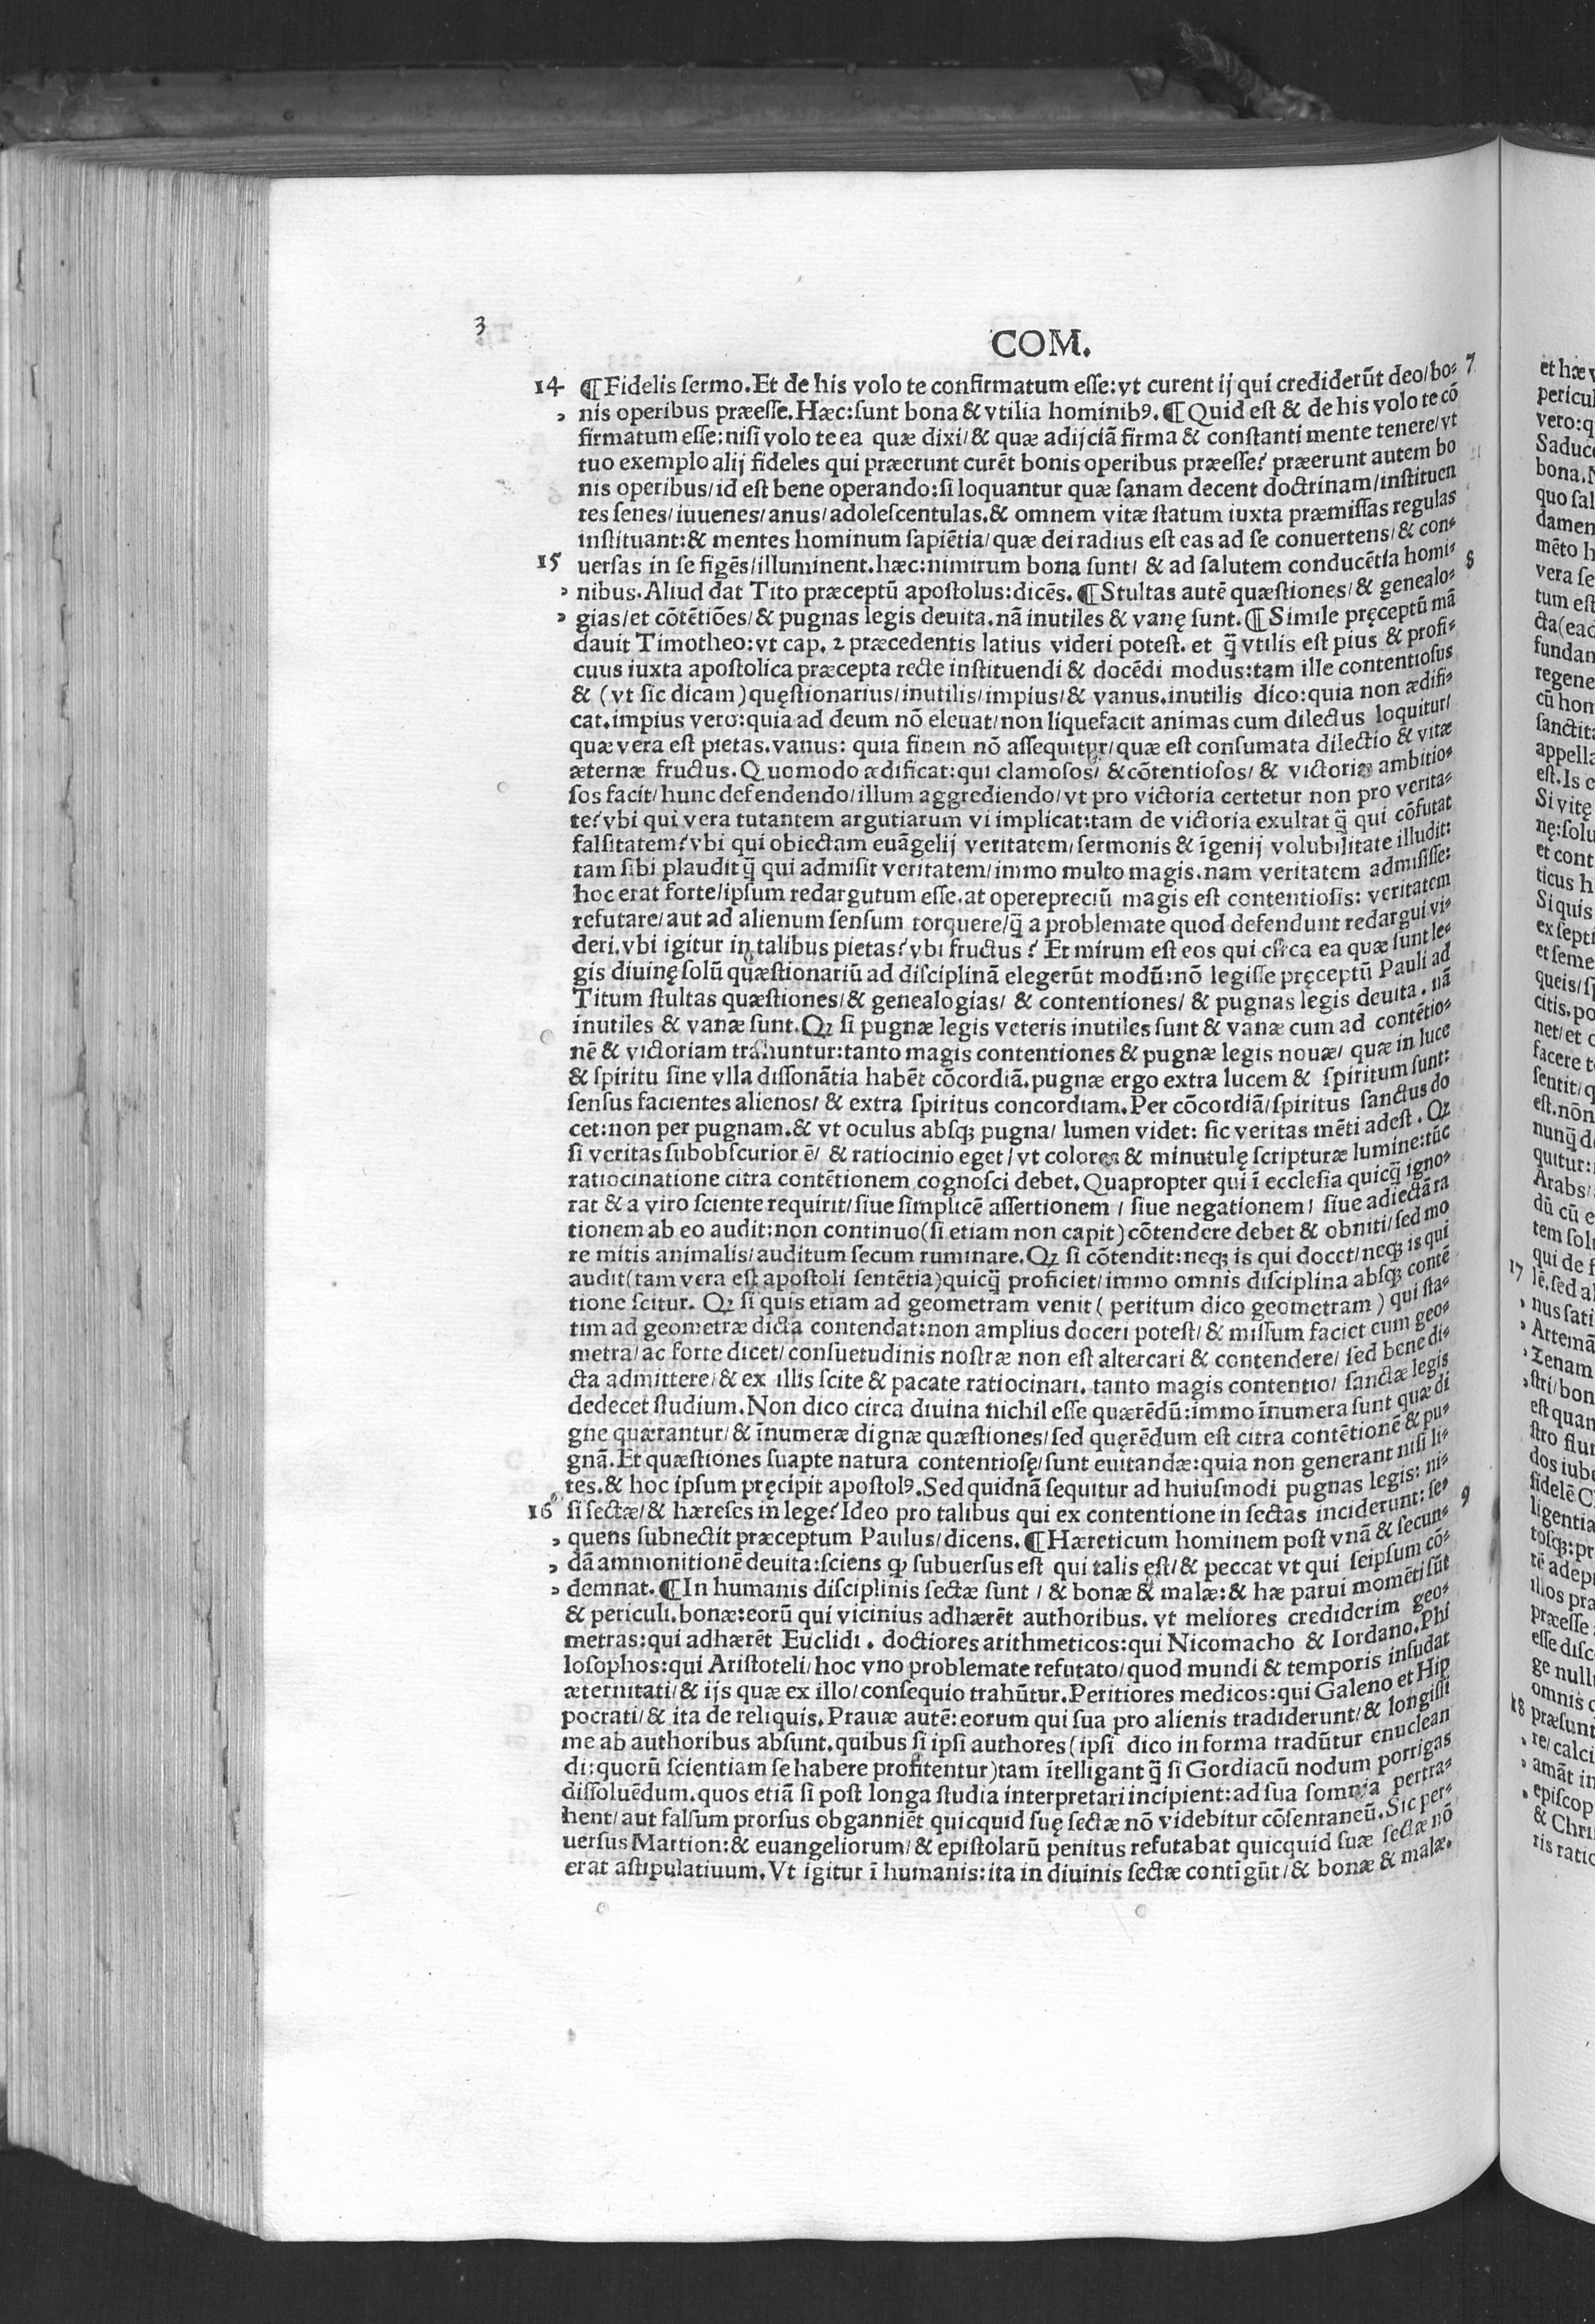 3
COM.
14 ¶Fidelis sermo.Et de his volo te confirmatum esse:vt curent ij qui crediderūt deo/bo= 7
, nis operibus præesse.Hæc:sunt bona & vtilia hominibꝰ.¶Quid est & de his volo te cō
firmatum esse:nisi volo te ea quæ dixi/& quæ adijciā firma & constanti mente tenere/vt
tuo exemplo alij fideles qui præerunt curēt bonis operibus præesse? præerunt autem bo
nis operibus/id est bene operando:si loquantur quæ sanam decent doctrinam/instituen
tes senes/iuuenes/anus/adolescentulas.& omnem vitæ statum iuxta præmissas regulas
instituant:& mentes hominum sapiētia/quæ dei radius est eas ad se conuertens/& con=
15 uersas in se figēs/illuminent.hæc:nimirum bona sunt/ & ad salutem conducētia homi= 8
, nibus.Aliud dat Tito præceptū apostolus:dicēs.¶Stultas autē quæstiones/& genealo=
, gias/et cōtētiōes/& pugnas legis deuita.nā inutiles & vanę sunt.¶Simile pręceptū mā
dauit Timotheo:vt cap. 2 præcedentis latius videri potest. et q̄̃ vtilis est pius & profi=
cuus iuxta apostolica præcepta recte instituendi & docēdi modus:tam ille contentiosus
& (vt sic dicam)quęstionarius/inutilis/impius/& vanus.inutilis dico:quia non ædifi=
cat.impius vero:quia ad deum nō eleuat/non liquefacit animas cum dilectus loquitur/
quæ vera est pietas.vanus: quia finem nō assequitur/quæ est consumata dilectio & vitæ
æternæ fructus.Quomodo ædificat:qui clamosos/ &cōtentiosos/ & victoriæ ambitio=
sos facit/hunc defendendo/illum aggrediendo/vt pro victoria certetur non pro verita=
te?vbi qui vera tutantem argutiarum vi implicat:tam de victoria exultat q̄̃ qui cōfutat
falsitatem?vbi qui obiectam euāgelij veritatem/sermonis & īgenij volubilitate illudit:
tam sibi plaudit q̄̃ qui admisit veritatem/immo multo magis.nam veritatem admisisse:
hoc erat forte/ipsum redargutum esse.at operepreciū magis est contentiosis: veritatem
refutare/aut ad alienum sensum torquere/q̄̃ a problemate quod defendunt redargui vi=
deri.vbi igitur in talibus pietas?vbi fructus? Et mirum est eos qui circa ea quæ sunt le=
gis diuinę solū quæstionariū ad disciplinā elegerūt modū:nō legisse pręceptū Pauli ad
Titum stultas quæstiones/& genealogias/ & contentiones/ & pugnas legis deuita. nā
inutiles & vanæ sunt.Qꝫ si pugnæ legis veteris inutiles sunt & vanæ cum ad contētio=
nē & victoriam trahuntur:tanto magis contentiones & pugnæ legis nouæ/ quæ in luce
& spiritu sine vlla dissonātia habēt cōcordiā.pugnæ ergo extra lucem & spiritum sunt:
sensus facientes alienos/ & extra spiritus concordiam.Per cōcordiā/spiritus sanctus do
cet:non per pugnam.& vt oculus absqꝫ pugna/ lumen videt: sic veritas mēti adest. Qꝫ
si veritas subobscurior ē/ & ratiocinio eget/vt colores & minutulę scripturæ lumine:tūc
ratiocinatione citra contētionem cognosci debet.Quapropter qui ī ecclesia quicq̄̃ igno=
rat & a viro sciente requirit/siue simplicē assertionem / siue negationem/ siue adiectā ra
tionem ab eo audit:non continuo(si etiam non capit)cōtendere debet & obniti/sed mo
re mitis animalis/auditum secum ruminare.Qꝫ si cōtendit:neqꝫ is qui docet/neqꝫ is qui
audit(tam vera est apostoli sentētia)quicq̄̃ proficiet/immo omnis disciplina absqꝫ contē
tione scitur. Qꝫ si quis etiam ad geometram venit( peritum dico geometram ) qui sta=
tim ad geometræ dicta contendat:non amplius doceri potest/ & missum faciet eum geo=
metra/ac forte dicet/consuetudinis nostræ non est altercari & contendere/ sed bene di=
cta admittere/& ex illis scite & pacate ratiocinari. tanto magis contentio/ sanctæ legis
dedecet studium.Non dico circa diuina nichil esse quærēdū:immo īnumera sunt quæ di
gne quærantur/& īnumeræ dignæ quæstiones/sed quęrēdum est citra contētionē & pu=
gnā.Et quæstiones suapte natura contentiosę/sunt euitandæ:quia non generant nisi li=
tes.& hoc ipsum pręcipit apostolꝰ.Sed quidnā sequitur ad huiusmodi pugnas legis: ni=
16 si sectæ/& hæreses in lege?Ideo pro talibus qui ex contentione in sectas inciderunt: se= 9
, quens subnectit præceptum Paulus/dicens.¶Hæreticum hominem post vnā & secun=
, dā ammonitionē deuita:sciens ꝙ subuersus est qui talis est/& peccat vt qui seipsum cō=
, demnat.¶In humanis disciplinis sectæ sunt / & bonæ & malæ:& hæ parui momēti sūt
& periculi.bonæ:eorū qui vicinius adhærēt authoribus. vt meliores crediderim geo=
metras:qui adhærēt Euclidi. doctiores arithmeticos:qui Nicomacho & Iordano.Phi
losophos:qui Aristoteli/hoc vno problemate refutato/quod mundi & temporis insudat
æternitati/& ijs quæ ex illo/consequio trahūtur.Peritiores medicos:qui Galeno et Hip
pocrati/& ita de reliquis.Prauæ autē:eorum qui sua pro alienis tradiderunt/& longissi
me ab authoribus absunt.quibus si ipsi authores(ipsi dico in forma tradūtur enuclean
di:quorū scientiam se habere profitentur)tam ītelligant q̄̃ si Gordiacū nodum porrigas
dissoluēdum.quos etiā si post longa studia interpretari incipient:ad sua somnia pertra=
hent/aut falsum prorsus obganniēt quicquid suę sectæ nō videbitur cōsentaneū.Sic per=
uersus Martion:& euangeliorum/& epistolarū penitus refutabat quicquid suæ sectæ nō
erat astipulatiuum.Vt igitur ī humanis:ita in diuinis sectæ contīgūt/& bonæ & malæ.